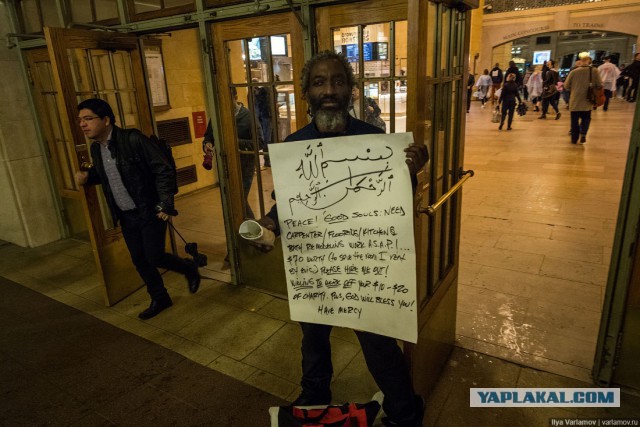 بسم الله
الرحمن الرحيم
PEACE! GOOD SOULS: NEED
CARPENTER/FLOORS/KITCHEN &
BATH REMODELING WORK A.S.A.P!...
$70 WORTH (TO SAVE THE
PLEASE HIRE ME OUT/
WILLING TO WORK OFF YOUR $10-$20
OF CHARITY. PLUS, GOD WILL BLESS YOU!
HAVE MERCY
YAPLAKAL.COM
Ilya Varlamov | varlamov.ru